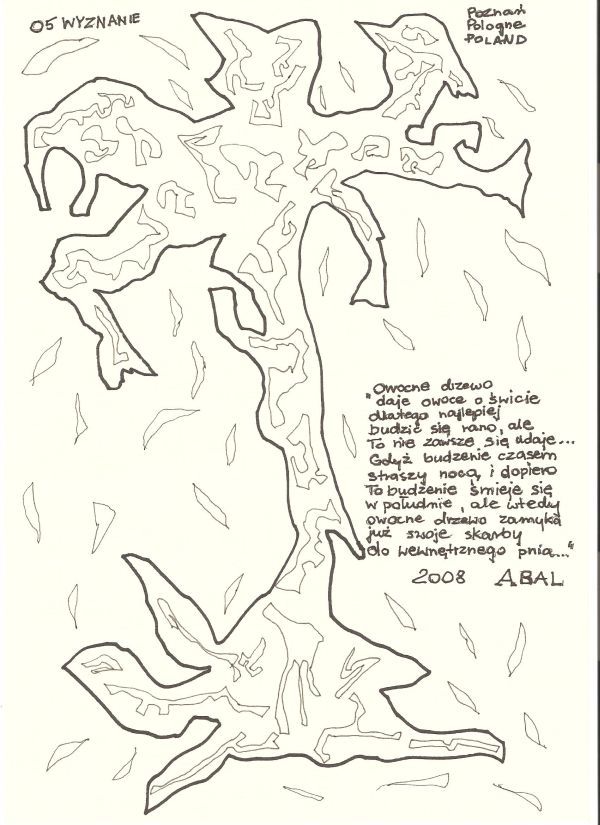 05 WYZNANIE
Poznań
Pologne
POLAND
Owocne drzewo
"daje owoce o świcie
dlatego najlepiej
budzić się rano, ale
To nie zawsze się udaje...
Gdyż budzenie czasem
straszy nocą, i dopiero
To budzenie śmieje się
w południe, ale wtedy
owocne drzewo zamyka
już swoje skarby
do wewnętrznego pnia..."
2008 ABAL